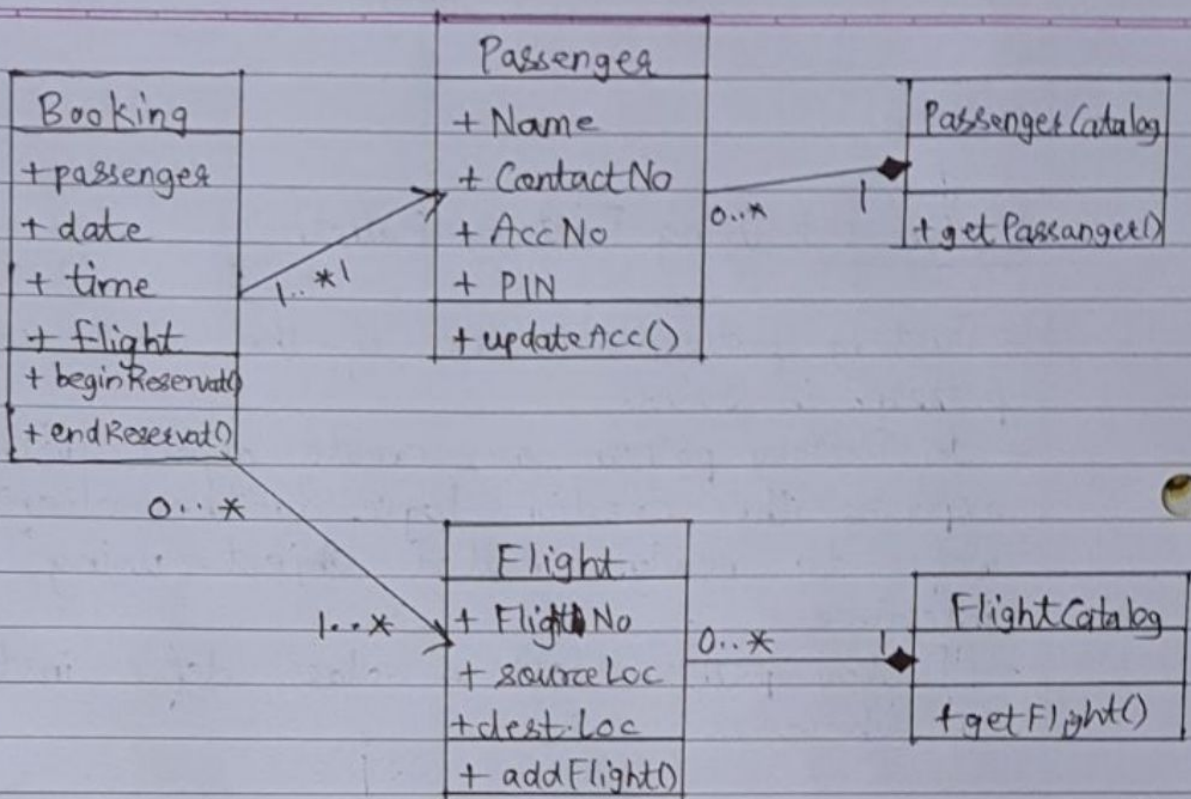 Booking
+ passenger
+ date
+ time
+ flight
+ beginReservat()
+ endReservat()
1..*1
Passenger
+ Name
+ ContactNo
+ AccNo
+ PIN
+ updateAcc()
0..*
1
PassengerCatalog
+ getPassanger()
0...*
1..*
Flight
+ FlightNo
+ sourceLoc
+ dest.Loc
+ addFlight()
0..*
1
FlightCatalog
+ getFlight()